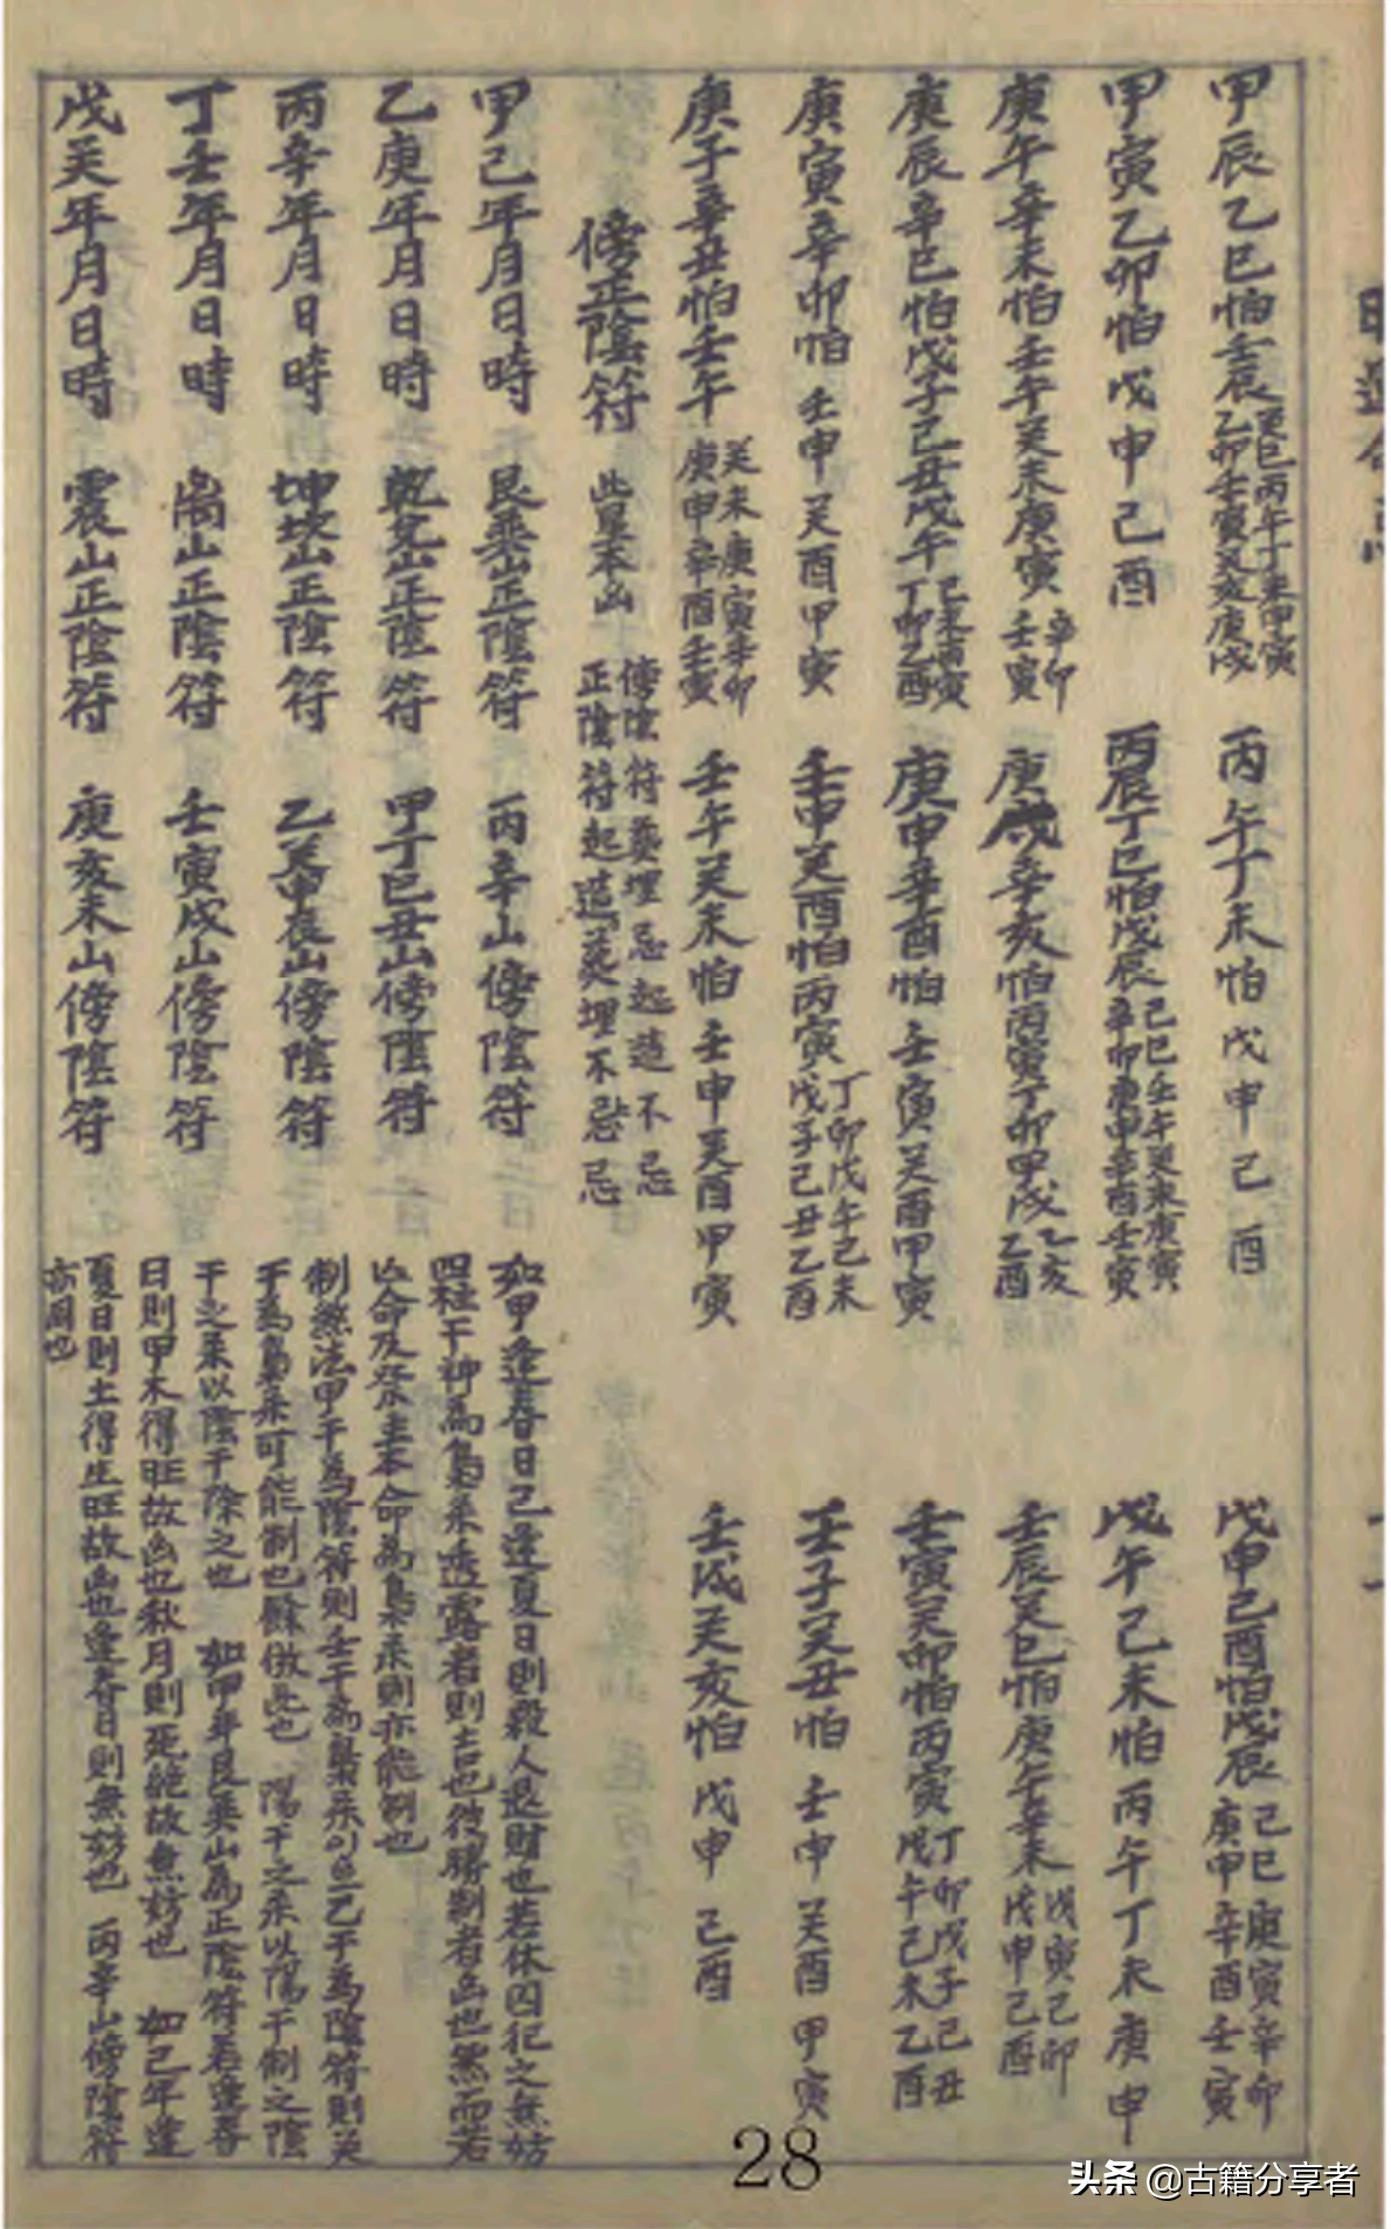 甲辰乙巳怕壬辰癸巳丙午丁未甲寅乙卯壬寅癸亥庚戌 丙午丁未怕戊申己酉 戊申己酉怕戊辰己巳庚寅辛卯庚申辛酉壬寅
甲寅乙卯怕戊申己酉 丙辰丁巳怕戊辰己巳壬午癸未庚寅辛卯庚申辛酉壬寅 戊午己未怕丙午丁未庚申
庚午辛未怕壬午癸未庚寅辛卯壬寅 庚戌辛亥怕丙寅丁卯甲戌乙亥乙酉 壬辰癸巳怕庚午辛未戊寅己卯戊申己酉
庚辰辛巳怕戊子己丑戊午己未丙寅丁卯乙酉 庚申辛酉怕壬寅癸酉甲寅 壬寅癸卯怕丙寅丁卯戊子己丑戊午己未乙酉
庚寅辛卯怕壬申癸酉甲寅 壬申癸酉怕丙寅丁卯戊午己未戊子己丑乙酉 壬子癸丑怕壬申癸酉甲寅
庚子辛丑怕壬午癸未庚寅辛卯庚申辛酉壬寅 壬午癸未怕壬申癸酉甲寅 壬戌癸亥怕戊申己酉
傍正陰符 此星本凶 傍陰符葬埋忌起造不忌 正陰符起造忌葬埋不忌忌
甲己年月日時 艮巽山正陰符 丙辛山傍陰符
乙庚年月日時 乾兌山正陰符 甲丁巳丑山傍陰符
丙辛年月日時 坤坎山正陰符 乙癸申辰山傍陰符
丁壬年月日時 离山正陰符 壬寅戌山傍陰符
戊癸年月日時 震山正陰符 庚亥未山傍陰符
如甲逢春日己逢夏日則殺人退財也若休囚犯之無妨
四柱干神為梟透露者則吉也彼勝制者凶也然而若
亡命及祭主本命為梟則亦能制也
制煞法甲干為陰符則壬干為梟己干為陰符則癸
干為梟可能制也餘倣此也 陽干之以陽干制之陰
干之以陰干除之也 如甲年艮巽山為正陰符若逢春
日則甲木得旺故凶也秋月則死絕故無妨也 如己年逢
夏日則土得生旺故凶也逢春日則無妨也 丙辛山傍陰符
亦同也
28
头条 @古籍分享者